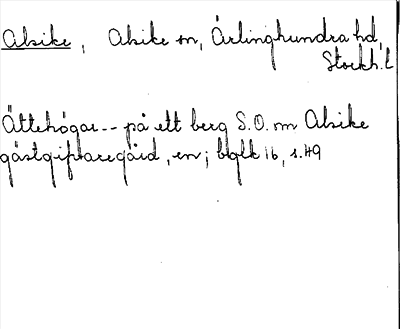 Alsike, Alsike sn, Ärlinghundra hd,
Stockh. l
Ättehögar -- på ett berg S.O. om Alsike
gästgifvaregård, en; bglk 16, s. 49